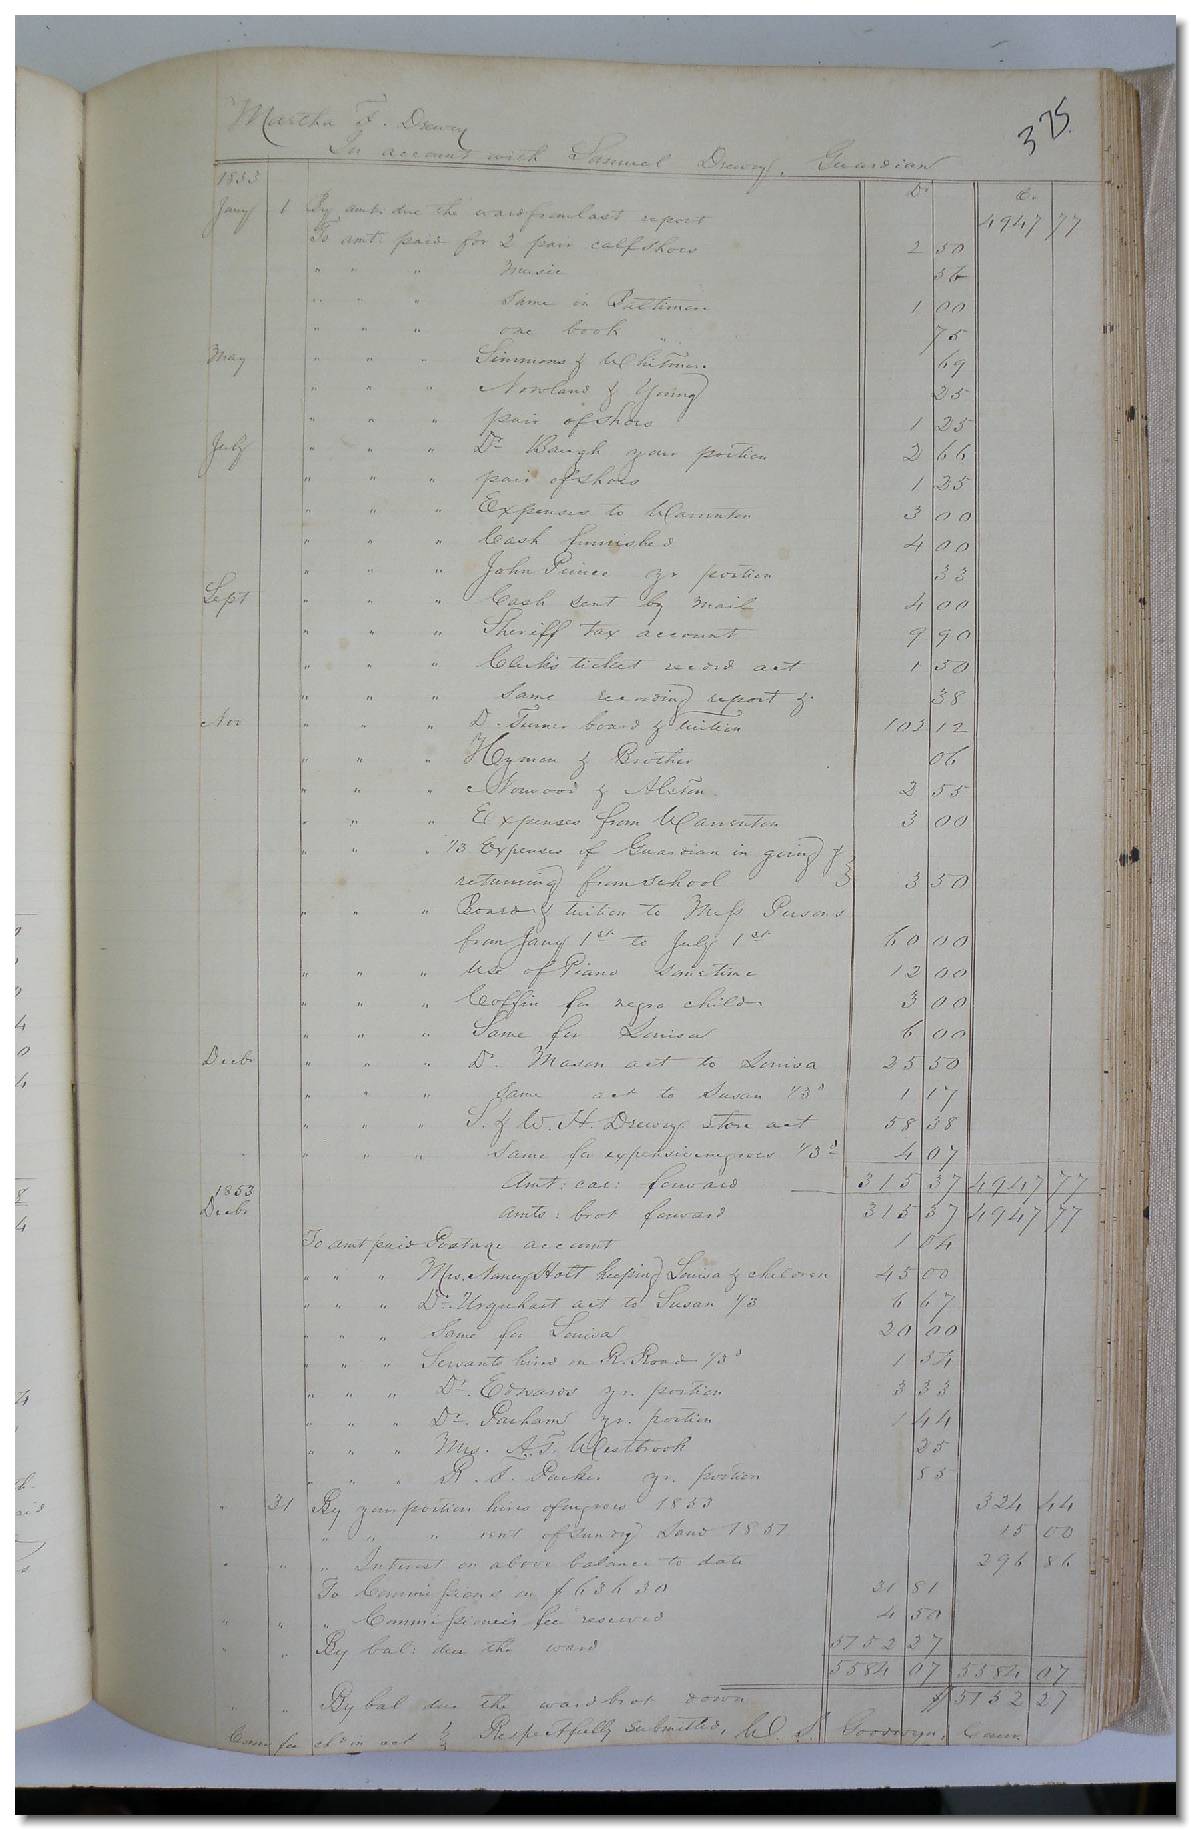 375.
Martha F. Drewry
In account with Samuel Drewry, Guardian
1853 Dr Cr
Jany 1 By amt: due the ward from last report 4947 77
To amt: paid for 2 pair calf shoes 2 50
" " " Music 36
" " " Same in Baltimore 1 00
" " " one book 75
May " " " Simmons & Whitmore 69
" " " Nowland & Young 25
" " " pair of shoes 1 25
July " " " Dr Baugh your portion 2 66
" " " pair of shoes 1 25
" " " Expenses to Warrenton 3 00
" " " Cash furnished 4 00
" " " John Prince yr portion 33
Sept " " " Cash sent by mail 4 00
" " " Sheriff tax account 9 90
" " " Clerk's ticket record act 1 50
" " " Same recording report &c 38
Nov " " " D. Turner board & tuition 103 12
" " " Hyman & Brother 06
" " " Norwood & Alston 2 55
" " " Expenses from Warrenton 3 00
" " " 1/3 Expenses of Guardian in going &
returning from school 3 50
" " " Board & tuition to Miss Persons
from Jany 1st to July 1st 60 00
" " " Use of Piano same time 12 00
" " " Coffin for negro child 3 00
" " " Same for Louisa 6 00
Decbr " " " Dr. Mason act to Louisa 25 50
" " " same act to Susan 1/3d 1 17
" " " S. & W. H. Drewry store act 58 38
" " " Same for expensive negroes 1/3d 4 07
Amt: car: forward 315 37 4947 77
1853
Decbr Amts: brot forward 315 37 4947 77
To amt paid Postage account 1 04
" " " Mrs. Nancy Holt keeping Louisa & children 45 00
" " " Dr. Urquhart act to Susan 1/3 6 67
" " " Same for Louisa 20 00
" " " Servants hired on R. Road 1/3d 1 34
" " " Dr. Edwards yr. portion 3 33
" " " Dr. Parham yr. portion 1 44
" " " Mrs. A. T. Westbrook 25
" " " R. S. Parker yr. portion 85
" 31 By your portion hires of negroes 1853 324 44
" " " rent of sundry Land 1851 15 00
" " " Interest on above balance to date 296 86
To Commissions on $636 30 31 81
" " " Commissioner's fee reserved 4 50
" " By bal: due the ward 5152 27
5584 07 5584 07
" " By bal due the ward brot down $5152 27
Comr fee chd in act & Respectfully submitted, W. S. Goodwyn, Comr.